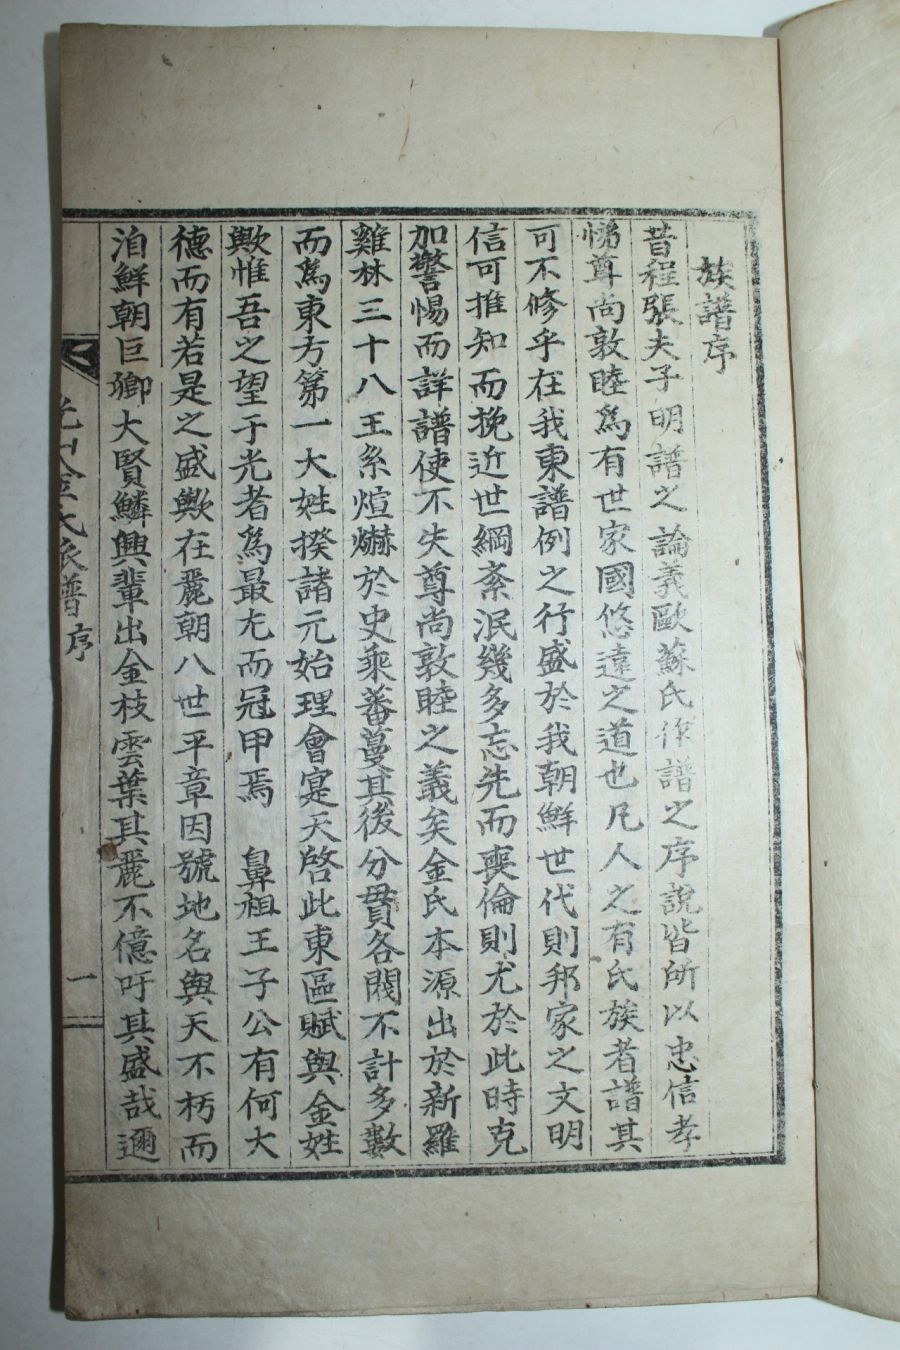 族譜序
昔程張夫子明譜之論義歐蘇氏作譜之序說皆所以忠信孝
悌尊尚敦睦爲有世家國悠遠之道也凡人之有氏族者譜其
可不修乎在我東譜例之行盛於我朝鮮世代則邦家之文明
信可推知而挽近世綱紊泯幾多忘先而喪倫則尤於此時克
加警惕而詳譜使不失尊尚敦睦之義矣金氏本源出於新羅
雞林三十八王系煊爀於史乘蕃蔓其後分貫各閥不計多數
而爲東方第一大姓揆諸元始理會寔天啓此東區賦與金姓
歟惟吾之望于光者爲最尤而冠甲焉 鼻祖王子公有何大
德而有若是之盛歟在麗朝八世平章因號地名與天不朽而
洎鮮朝巨卿大賢鱗興輩出金枝雲葉其麗不億吁其盛哉邇
金氏派譜 序 一